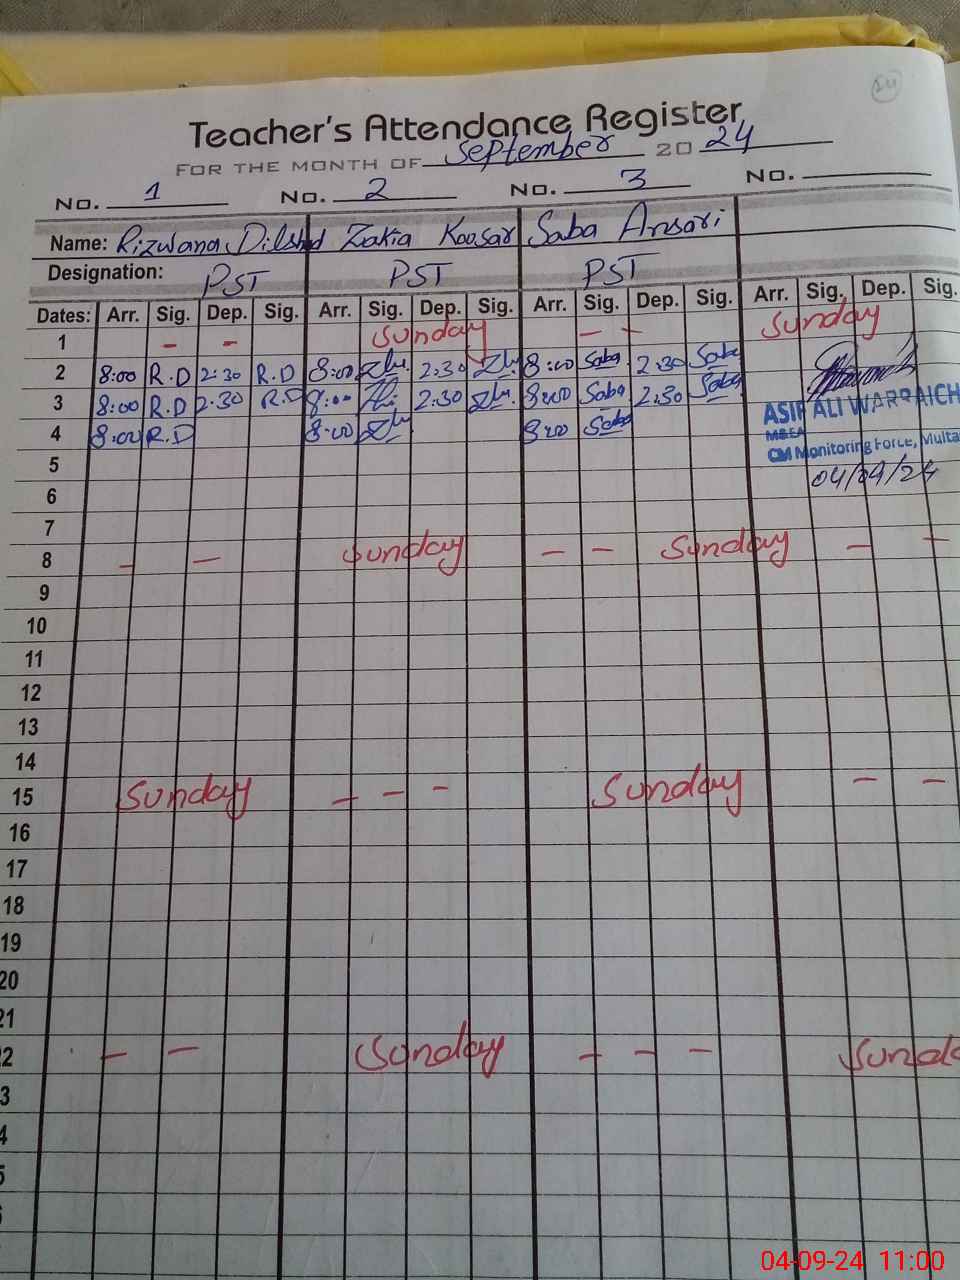 54
Teacher's Attendance Register
FOR THE MONTH OF September 2024
No. 1 No. 2 No. 3 No.
Name: Rizwana Dilshad Zakia Koosar Saba Ansari
Designation: PST PST PST
Dates: Arr. Sig. Dep. Sig. Arr. Sig. Dep. Sig. Arr. Sig. Dep. Sig. Arr. Sig. Dep. Sig.
1 - - Sunday - - Sunday
2 8:00 R.D 2:30 R.D 8:00 2:30 8:00 Saba 2:30 Saba
3 8:00 R.D 2:30 R.D 8:00 2:30 8:00 Saba 2:30 Saba
ASIF ALI WARRAICH
4 8:00 R.D 8:00 8:00 Saba
MBEA
CM Monitoring Force, Multa
5
04/09/24
6
7
8 - - Sunday - - Sunday - -
9
10
11
12
13
14
15 Sunday - - - Sunday - -
16
17
18
19
20
21
2 - - Sunday - - - Sund
3
4
5
04-09-24 11:00